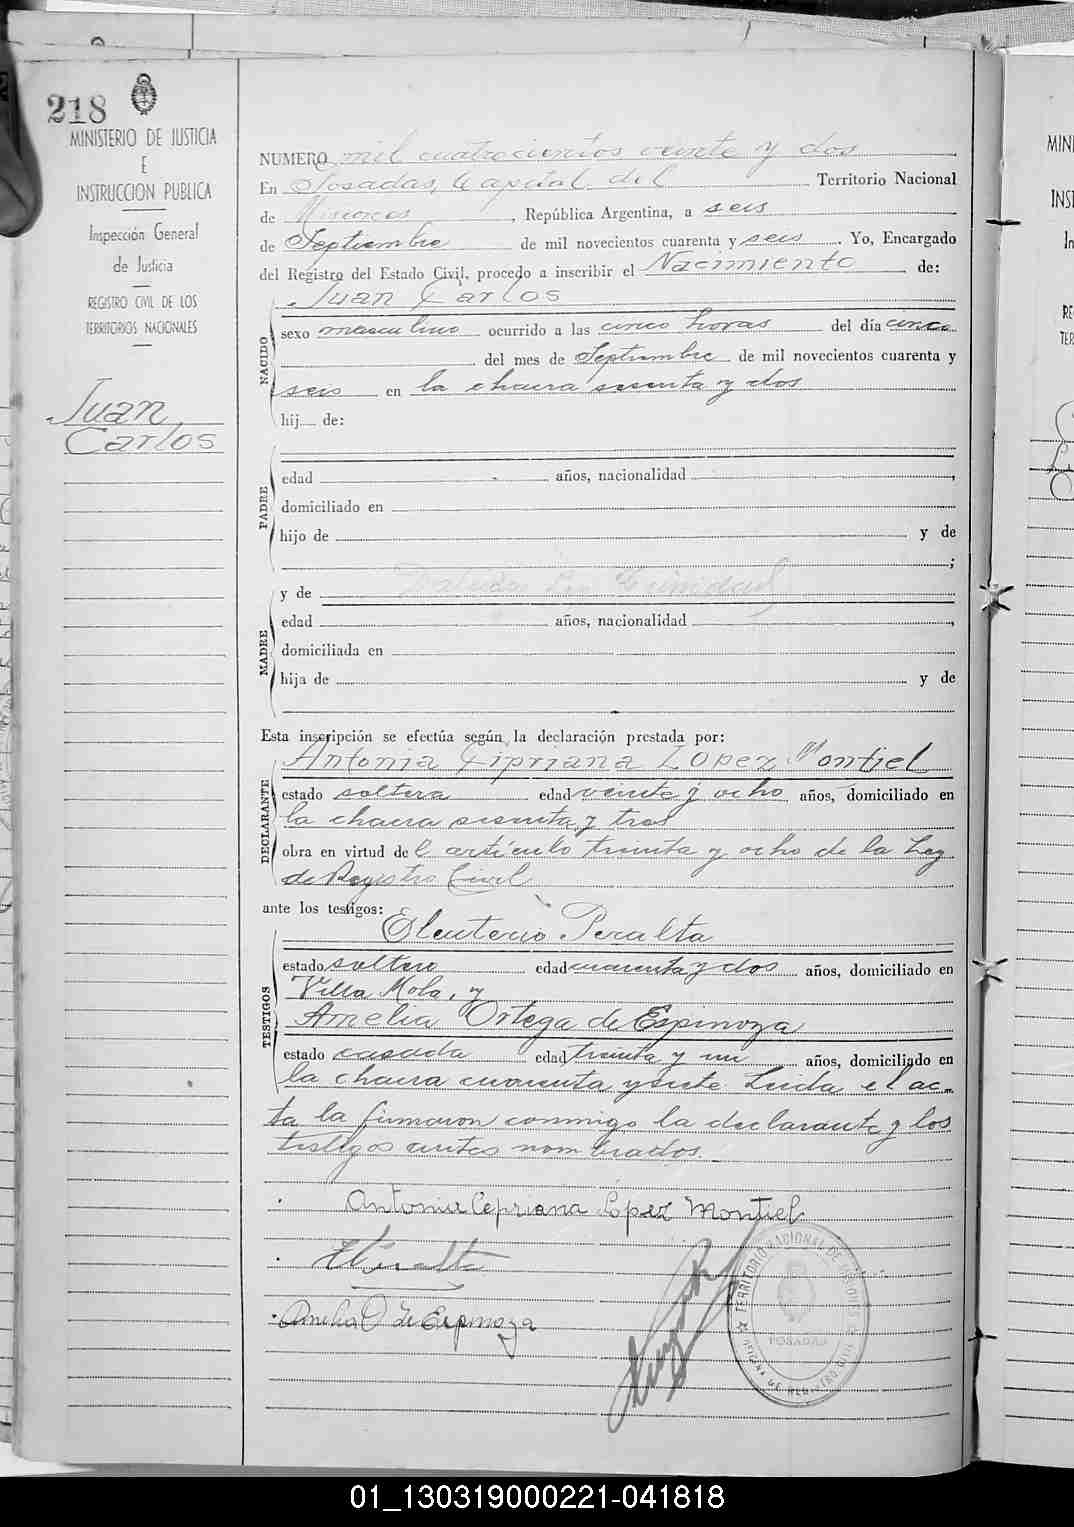 218
MINISTERIO DE JUSTICIA
E
INSTRUCCION PUBLICA
Inspección General
de Justicia
REGISTRO CIVIL DE LOS
TERRITORIOS NACIONALES
Juan
Carlos
NUMERO mil cuatrocientos veinte y dos
En Posadas, Capital del Territorio Nacional
de Misiones, República Argentina, a seis
de Septiembre de mil novecientos cuarenta y seis. Yo, Encargado
del Registro del Estado Civil, procedo a inscribir el Nacimiento de:
Juan Carlos
NACIDO
sexo masculino ocurrido a las cinco horas del día cinco
del mes de Septiembre de mil novecientos cuarenta y
seis en la chacra sesenta y dos
hij de:
PADRE
edad años, nacionalidad ,
domiciliado en
hijo de y de
;
y de
MADRE
edad años, nacionalidad ,
domiciliada en
hija de y de
Esta inscripción se efectúa según la declaración prestada por:
Antonia Cipriana Lopez Montiel
DECLARANTE
estado soltera edad veinte y ocho años, domiciliado en
la chacra sesenta y tres
obra en virtud del artículo treinta y ocho de la Ley
de Registro Civil
ante los testigos:
Eleuterio Peralta
TESTIGOS
estado soltero edad cuarenta y dos años, domiciliado en
Villa Mola, y
Amelia Ortega de Espinoza
estado casada edad treinta y un años, domiciliado en
la chacra cuarenta y siete. Leida el ac-
ta la firmaron conmigo la declarante y los
testigos antes nombrados.
Antonia Cepriana Lopez Montiel
EPeralta
Amelia O de Espinoza
TERRITORIO NACIONAL DE MISIONES
POSADAS
OFICINA DE REGISTRO CIVIL
MIN
INST
In
RE
TER
01_130319000221-041818